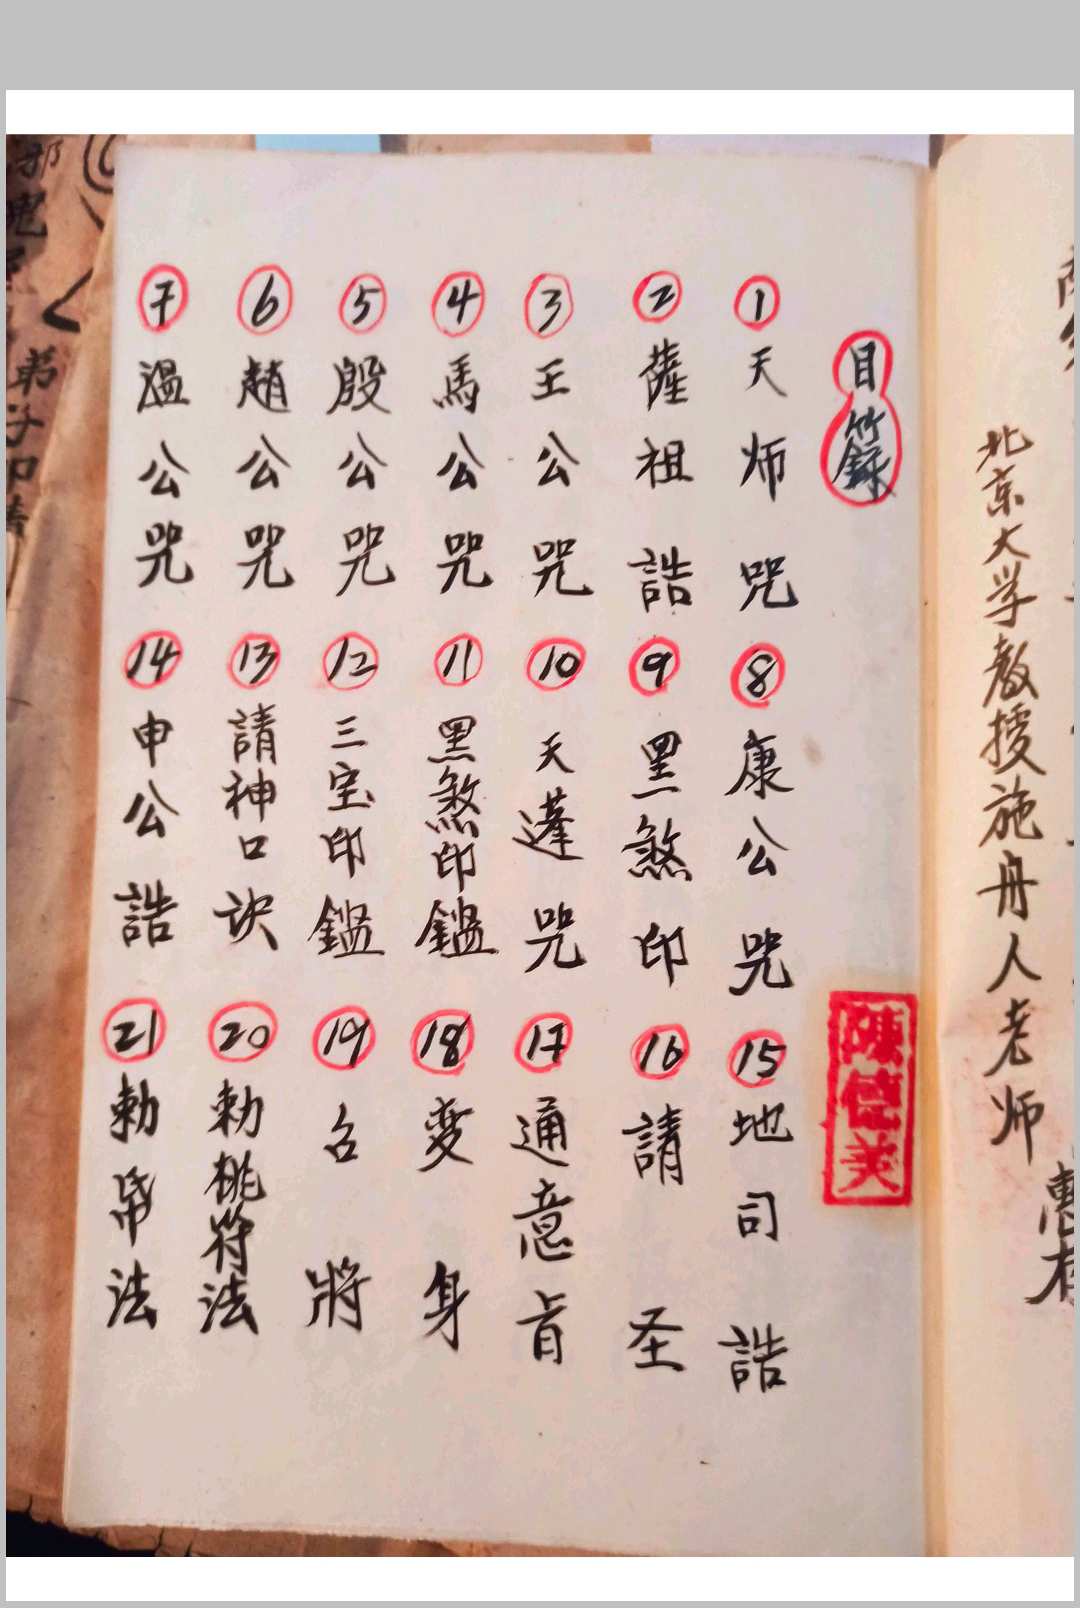 北京大学教授施舟人老师
惠存
目籙
① 天师咒
② 薩祖誥
③ 王公咒
④ 馬公咒
⑤ 殷公咒
⑥ 趙公咒
⑦ 溫公咒
⑧ 康公咒
⑨ 黑煞印
⑩ 天蓬咒
⑪ 黑煞印鑑
⑫ 三宝印鑑
⑬ 請神口訣
⑭ 申公誥
⑮ 地司誥
⑯ 請圣
⑰ 通意旨
⑱ 变身
⑲ 召將
⑳ 勅桃符法
㉑ 勅帋法
陳德美
邪鬼
弟子叩